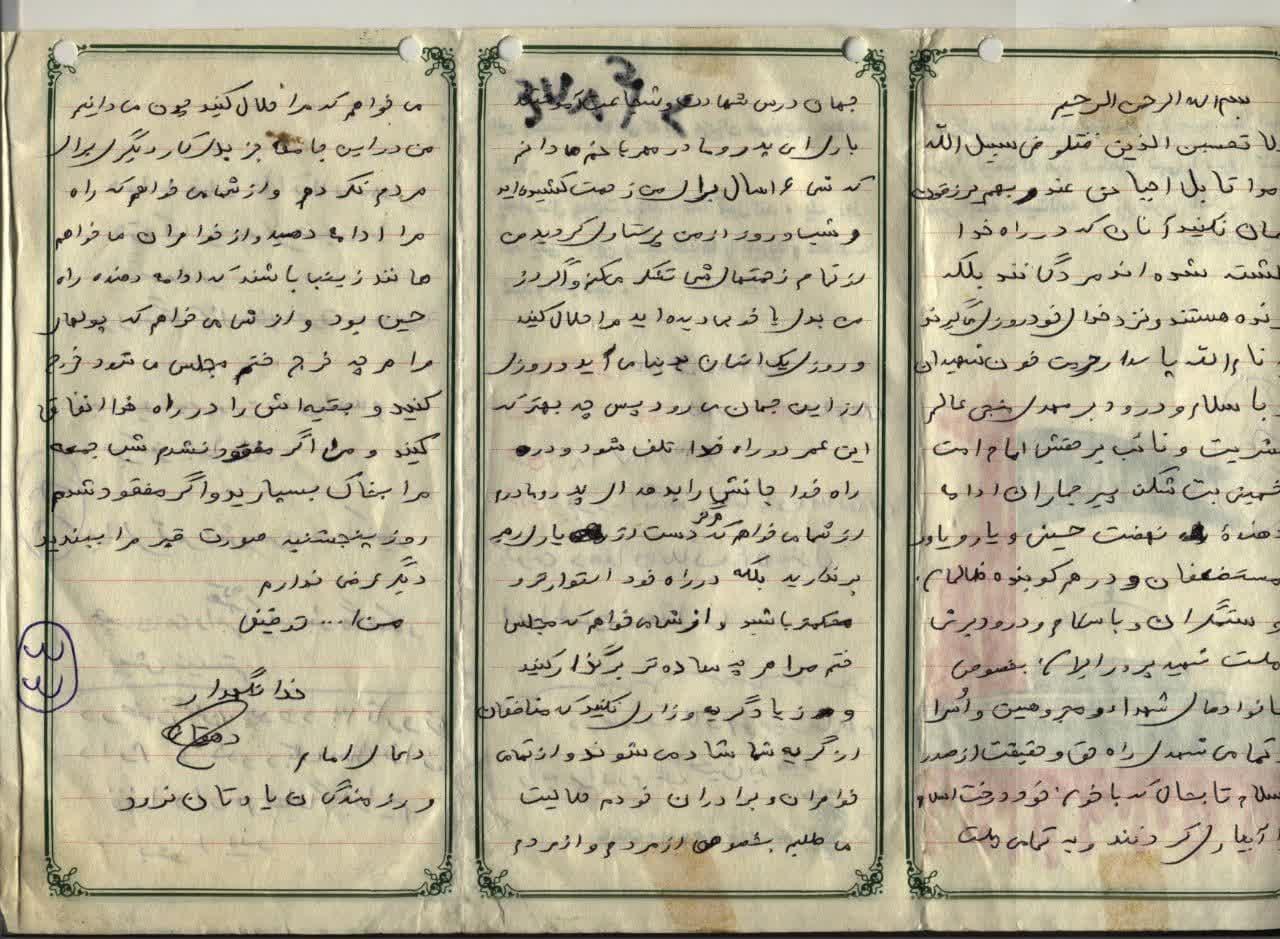 بسم الله الرحمن الرحیم
لا تحسبن الذین قتلو فی سبیل الله
موا تا بل احیا عند ربهم یرزقون
مان نکنید آنان که در راه خدا
کشته شده اند مردگانند بلکه
زنده هستند و نزد خدای خود روزی میگیرند
نام الله پاسدار حرمت خون شهیدان
با سلام و درود بر مهدی منجی عالم
بشریت و نائب بر حقش امام امت
خمینی بت شکن پیر جماران ادامه
دهندهٔ نهضت حسینی و یار و یاور
مستضعفان و در هم کوبنده ظالمان
و ستمگران و با سلام و درود بر
ملت شهید پرور ایران بخصوص
خانوادهای شهداء و مجروحین و اسرا
و تمامی شهدای راه حق و حقیقت از صدر
اسلام تا بحال که با خون خود درخت اسلام
آبیاری کردنند و به تمامی ملت
جهان درس شهادت و شجاعت
باری ای پدر و مادر مهربانم میدانم
که شما ۱۶ سال برای من زحمت کشیده اید
و شب و روز از من پرستاری کردید من
از تمام زحمتهای شما تشکر میکنم و اگر از
من بدی یا خوبی دیده اید مرا حلال کنید
و روزی یک انسان بدنیا می آید و روزی
از این جهان می رود پس چه بهتر که
این عمر در راه خدا تلف شود و در
راه خدا جانش را بدهد ای پدر و مادرم
از شما می خواهم که هرگز دست از یاری رهبر
برندارید بلکه در راه خود استوارتر و
محکمتر باشید و از شما می خواهم که مجلس
ختم مرا هر چه ساده تر برگذار کنید
و زیاد گریه و زاری نکنید که منافقان
از گریه شما شاد می شوند و از تمامی
خواهران و برادران خودم حلالیت
می طلبم بخصوص از مردم و از مردم
می خواهم که مرا حلال کنید چون می دانیم
من در این جامعه جز بدی کار دیگری برای
مردم نکردم و از شما می خواهم که راه
مرا ادامه دهید و از خواهران می خواهم
مانند زینب باشند که ادامه دهنده راه
حسین بود و از شما می خواهم که پولهای
مرا هر چه خرج ختم مجلس می شود خرج
کنید و بقیه اش را در راه خدا انفاق
کنید و مرا اگر مفقود نشدم شب جمعه
مرا بخاک بسپارید و اگر مفقود شدم
روز پنجشنبه صورت قبر مرا ببندید
دیگر عرضی ندارم
خدا نگهدار
دعای امام
و رزمندگان یادتان نرود